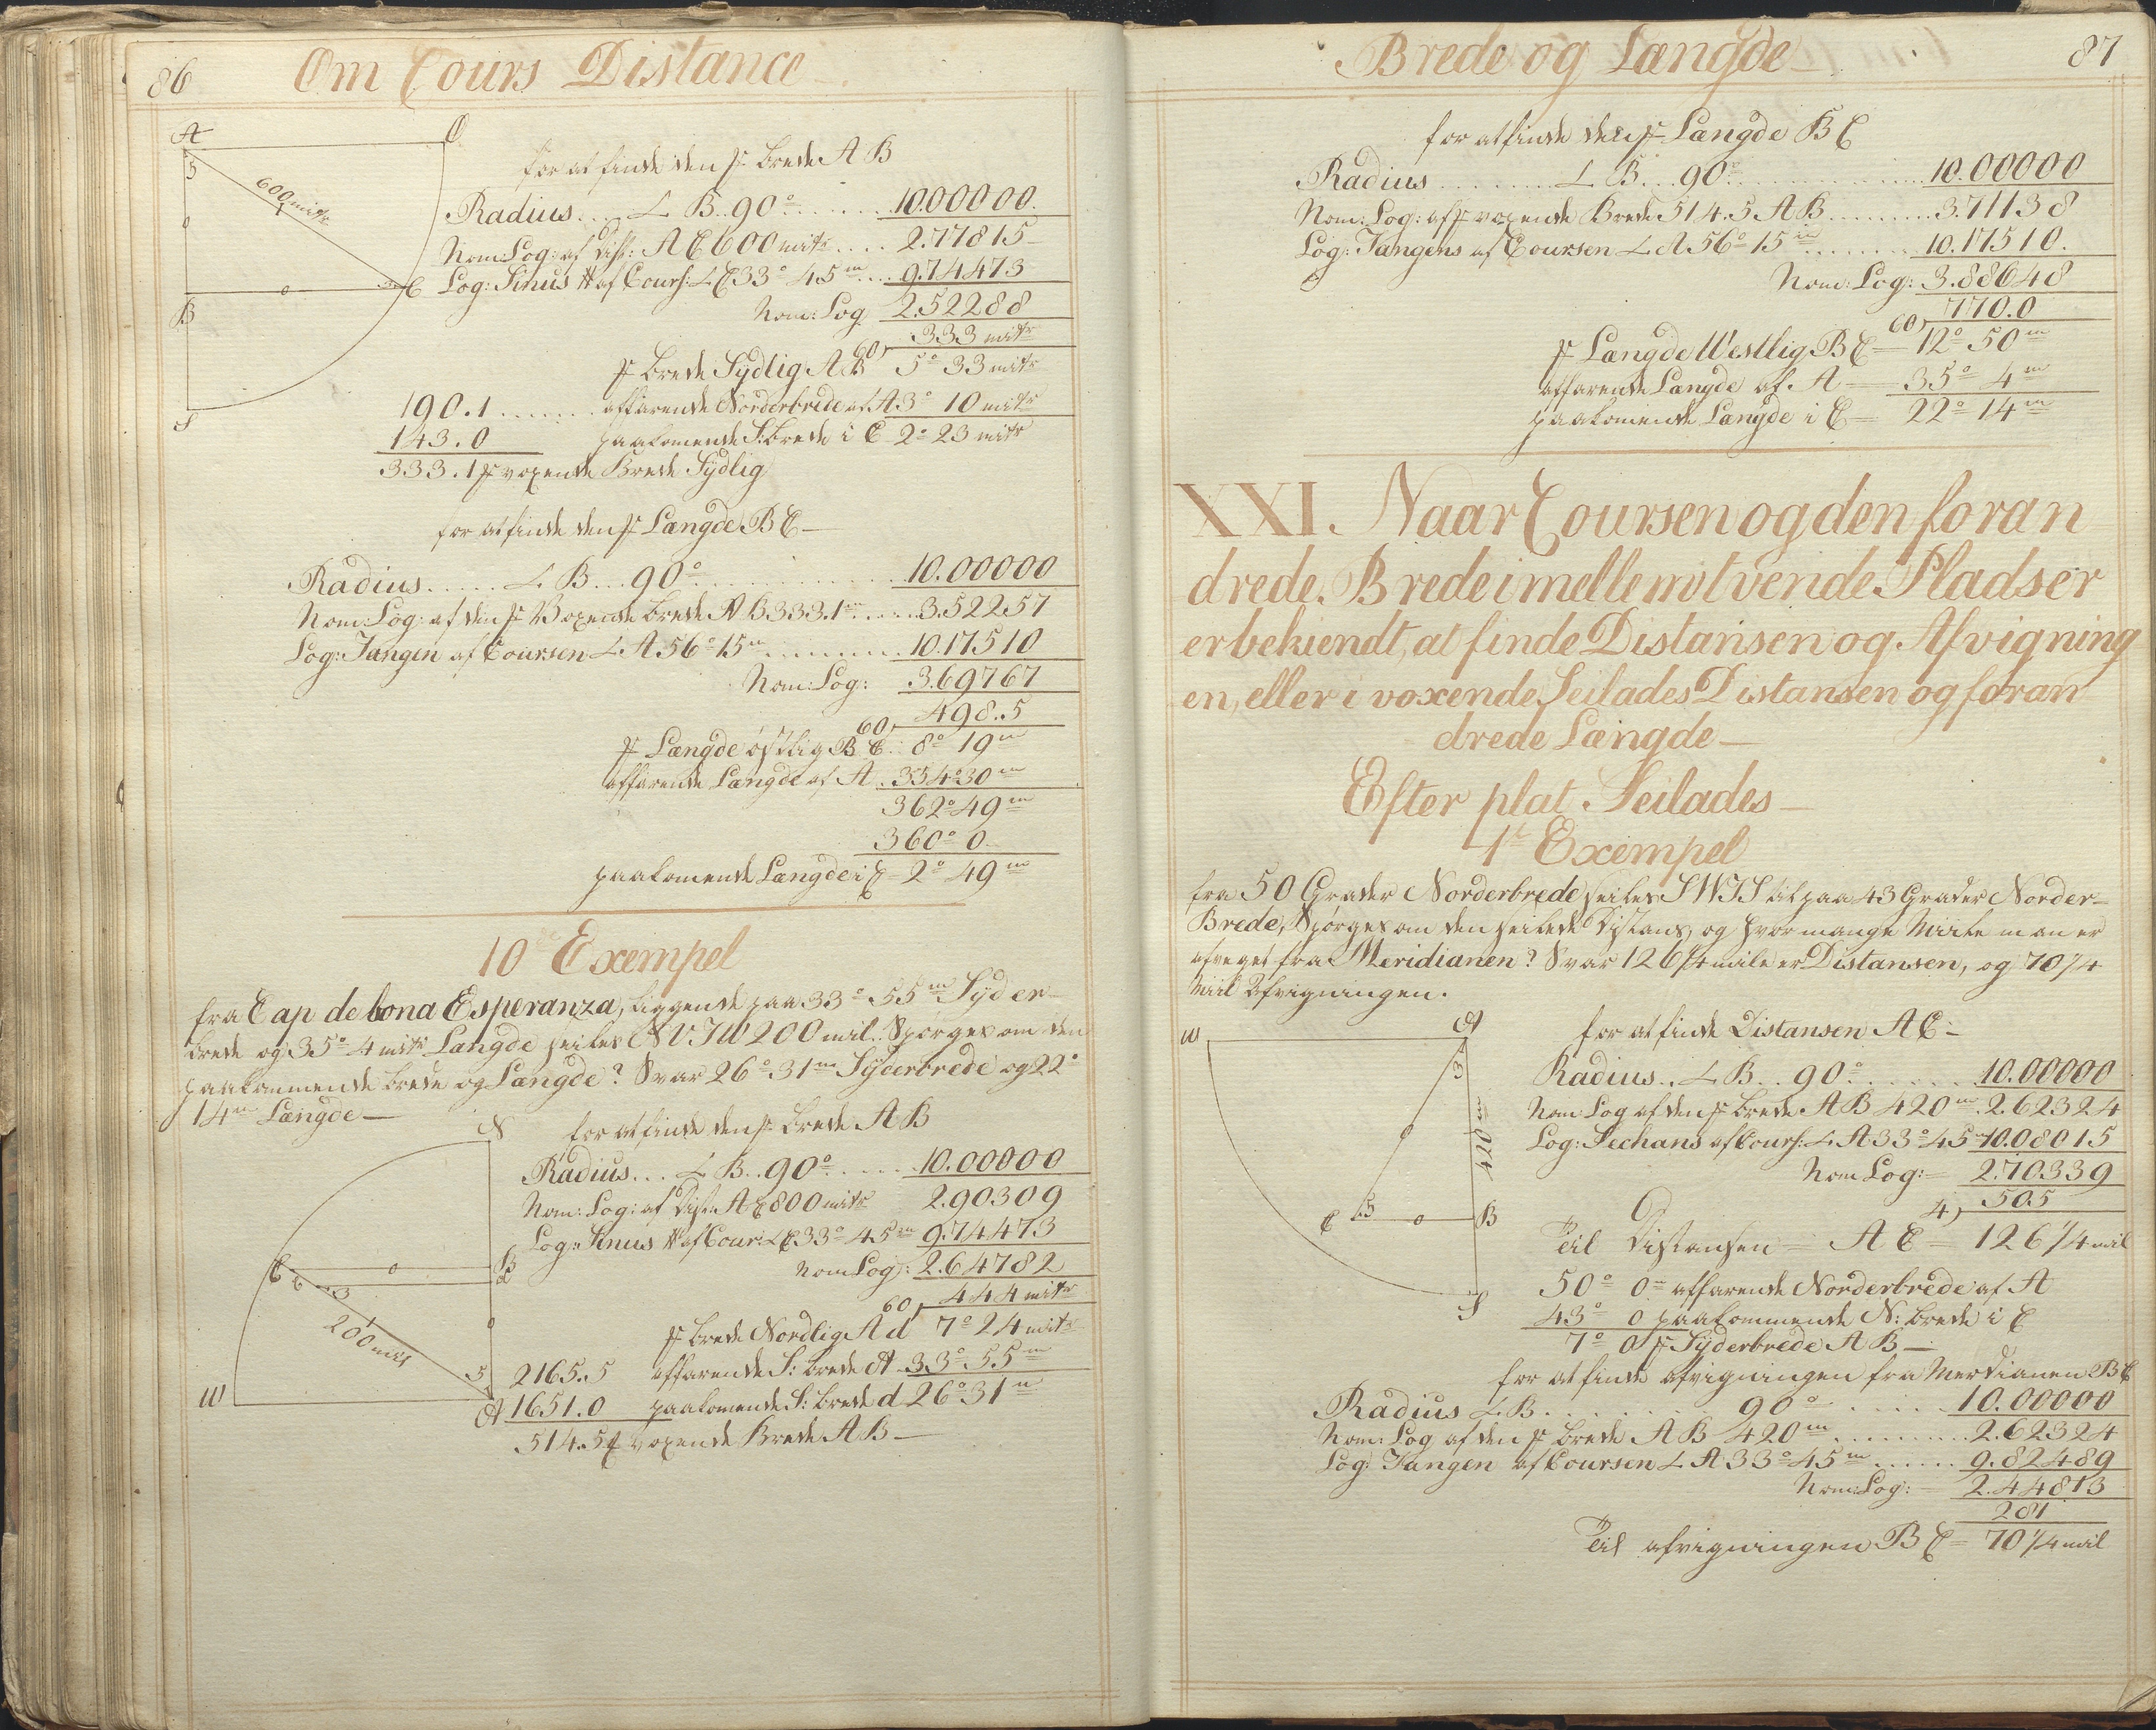 86
Om Cours Distance
A
O
3
0
600 mitr
B
0
3
C
S
for at finde den fr brede A B
Radius . . . L B . . 90° . . . . . . 10.00000
Nom: Log: af Dist: A C 600 mitr . . . . 2.77815
Log: Sinus af Cours: L C 33° 45 m . . . 9.74473
Nom: Log 2.52288
60, 333 mitr
fr brede Sydlig A B 5° 33 mitr
190.1 . . . . . . . affarende Norderbrede af A 3° 10 mitr
143.0 paakomende S: brede i C 2° 23 mitr
333.1 fr voxende Brede Sydlig
for at finde den fr Længde B C —
Radius . . . . . L B . . . 90° . . . . . . . . . . 10.00000
Nom: Log: af den fr Voxende brede A B 333.1 m . . . . 3.52257
Log: Tangen af Coursen L A 56° 15 m . . . . . . . . 10.17510
Nom: Log: 3.69767
60, 498.5
fr Længde östlig B C 8° 19 m
affarende Længde af A 354° 30 m
362° 49 m
360° 0
paakomende Længde i C 2° 49 m
10 de Exempel
fra Cap de bona Esperanza, liggende paa 33° 55 m Syder
brede og 35° 4 mitr Længde seiles NVTW 200 mil. Spørges om den
paakommende brede og Længde? Svar 26° 31 m Syderbrede og 22°
14 m Længde —
N
C
0
B
d
0
3
200 mil
5
W
A
for at finde den fr brede A B
Radius . . . L B . . 90° . . . . . 10.00000
Nom: Log: af Dist: A C 800 mitr 2.90309
Log: Sinus af Cour: L C 33° 45 m 9.74473
Nom Log: 2.64782
60, 444 mitr
fr brede Nordlig A d 7° 24 mitr
2165.5 affarende S: brede A 33° 55 m
1651.0 paakomende S: brede d 26° 31 m
514.5 fr voxende Brede A B —
Brede og Længde
87
for at finde den fr Længde B C
Radius . . . . . . . . L B . . . 90° . . . . . . . . . . . . 10.00000
Nom: Log: af fr voxende Brede 514.5 A B . . . . . . . . . 3.71138
Log: Tangens af Coursen L A 56° 15 m . . . . . . . . 10.17510
Nom: Log: 3.88648
60, 770.0
fr Længde Westlig B C = 12° 50 m
affarende Længde af A = 35° 4 m
paakomende Længde i C = 22° 14 m
XXI. Naar Coursen og den foran
drede Brede imellem tvende Pladser
er bekiendt, at finde Distansen og Afvigning
en, eller i voxende Seilades Distansen og foran
drede Længde —
Efter plat Seilades —
1te Exempel
fra 50 Grader Norderbrede seiles SWTS til paa 43 Grader Norder=
Brede, Spørges om den seilede Distans, og hvor mange Miile man er
afveget fra Meridianen? Svar 126 1/4 mile er Distansen, og 70 1/4
Miil Afvigningen.
W
A
3
0
420 m
C
5
0
B
S
for at finde Distansen A C —
Radius . . L B . . 90° . . . . . . 10.00000
Nom Log af den fr brede A B 420 m . 2.62324
Log: Sechans af Cours: L A 33° 45 m 10.08015
Nom Log: = 2.70339
4, 505
Til Distansen = A C = 126 1/4 mil
50° 0 m affarende Norderbrede af A
43° 0 paakommende N: brede i C
7° 0 fr Syderbrede A B —
for at finde afvigningen fra Merdianen B C
Radius L B . . . . . . . . 90° . . . . 10.00000
Nom: Log af den fr brede A B 420 m . . . . . . . . . 2.62324
Log: Tangen af Coursen L A 33° 45 m . . . . . . 9.82489
Nom: Log: = 2.44813
281
Til afvigningen B C = 70 1/4 mil